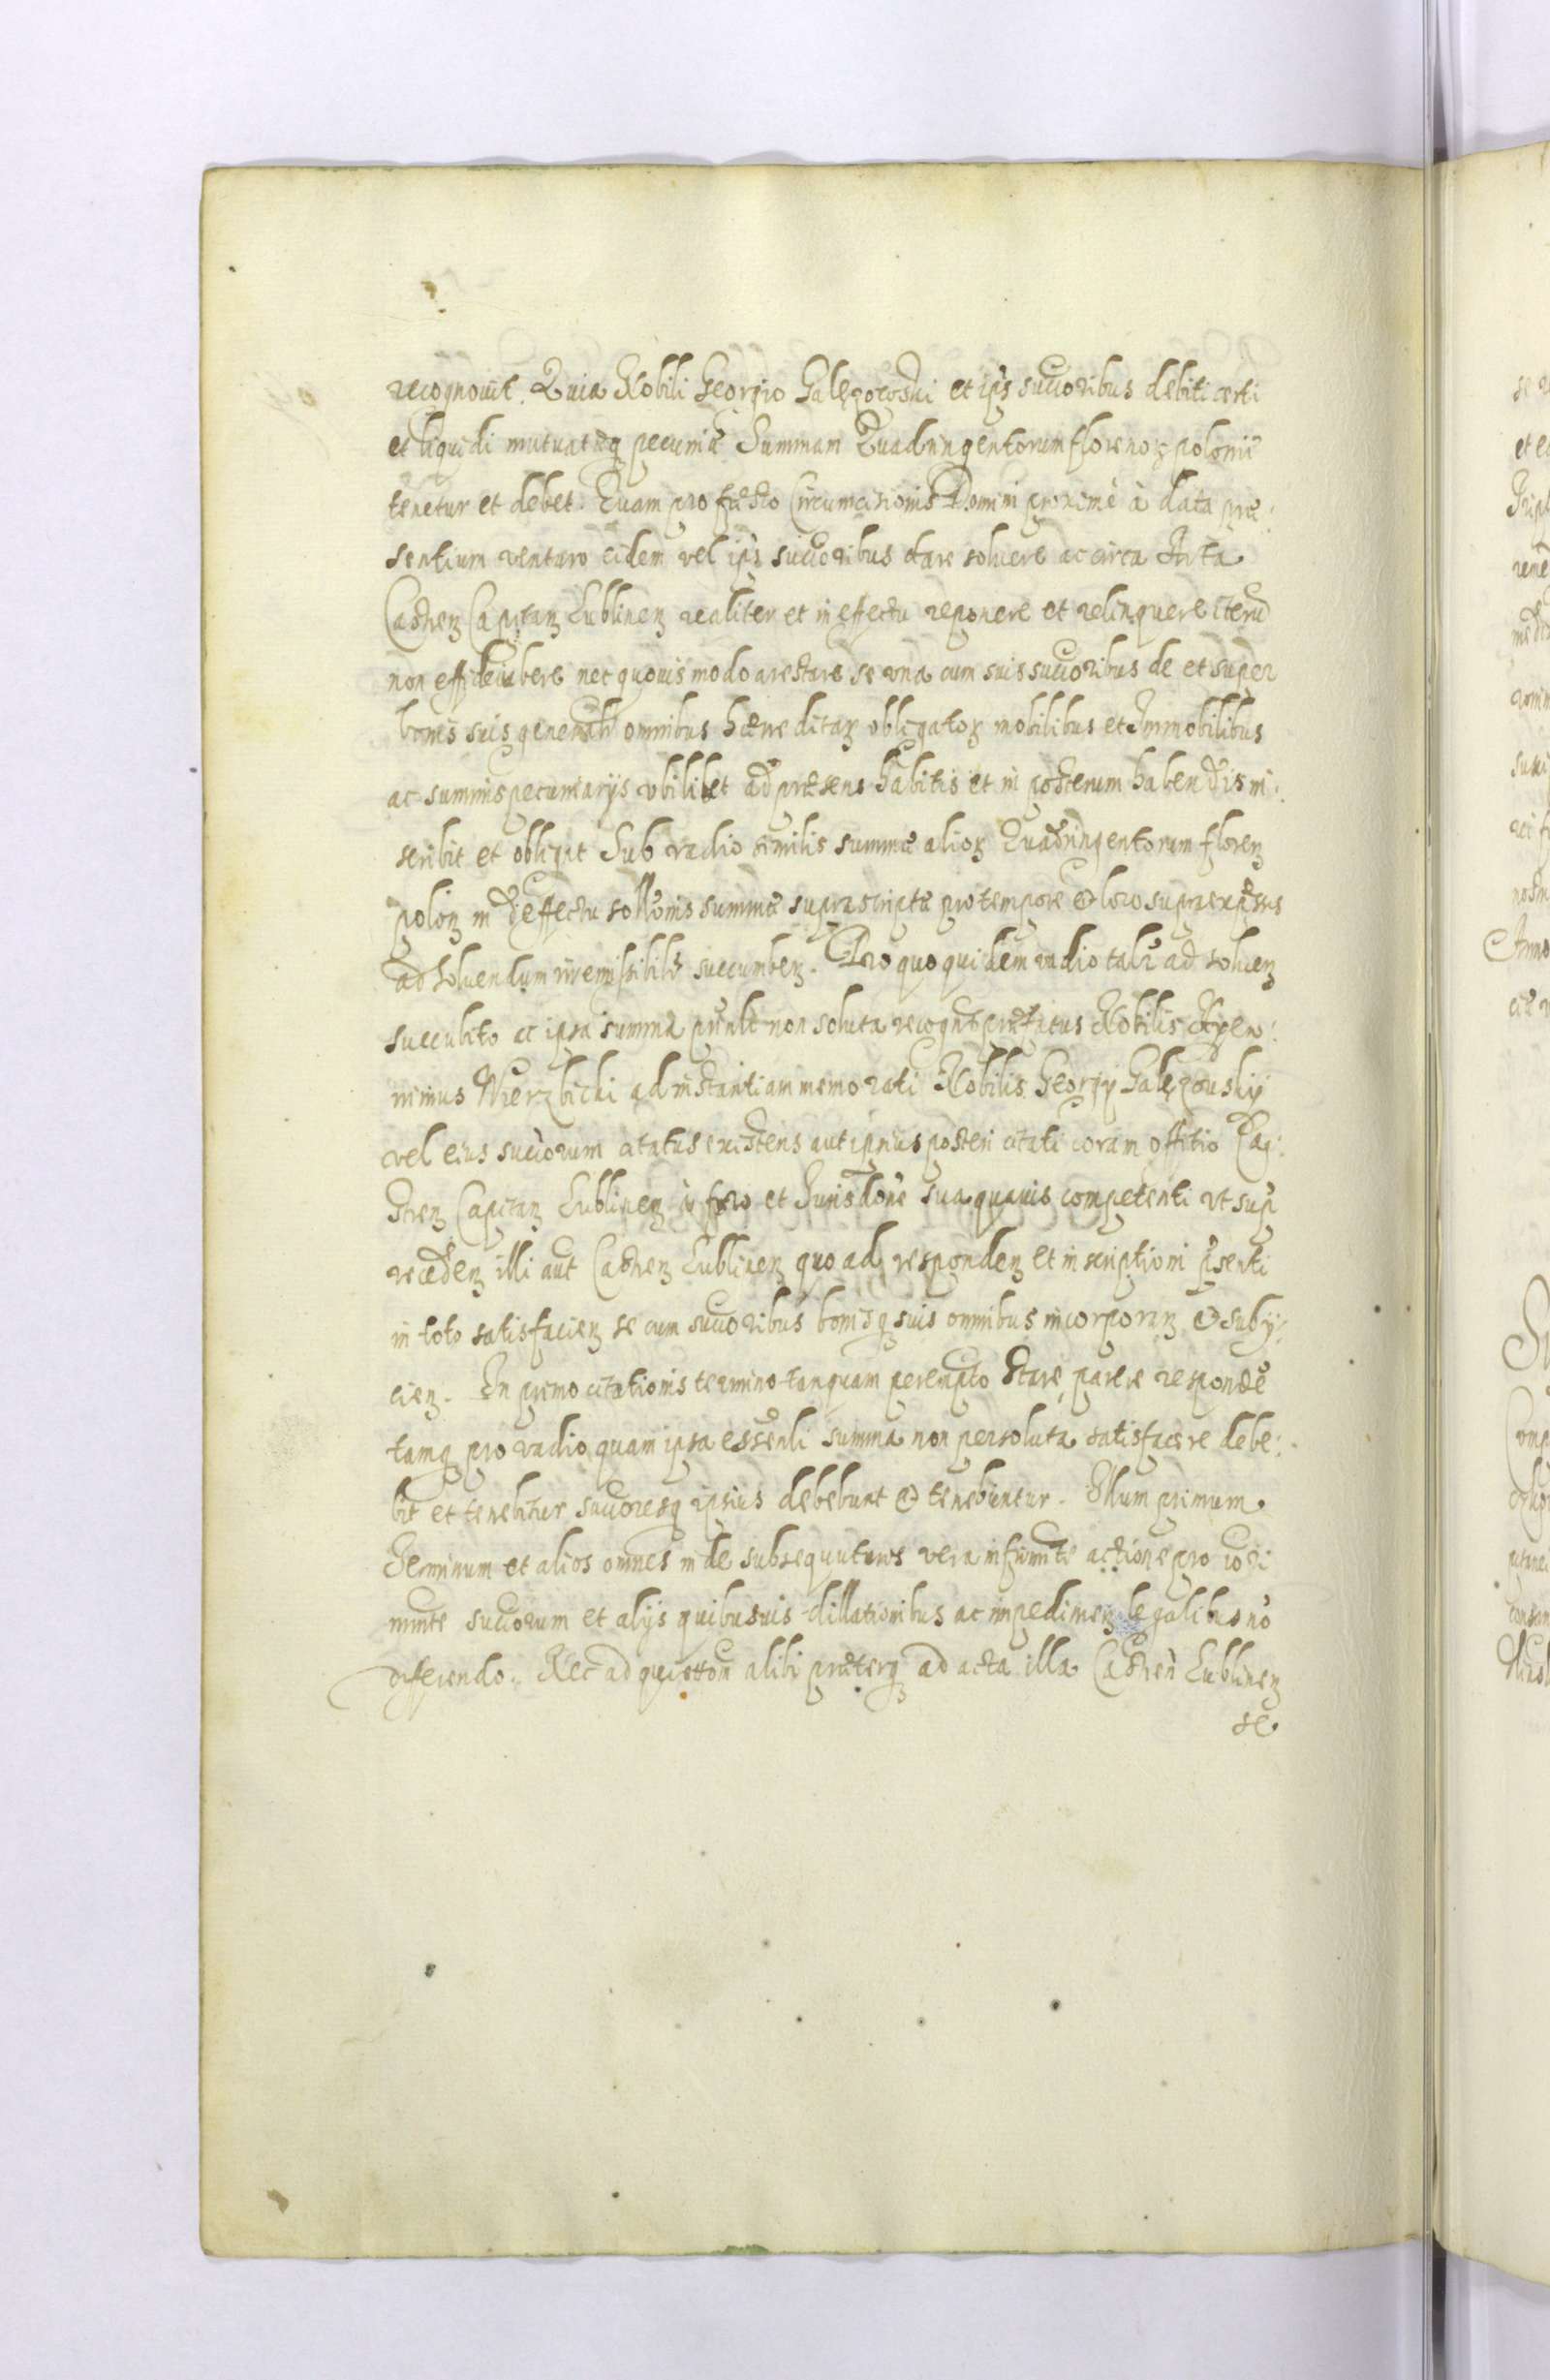 recognouit. Quia Nobili Georgio Galęzowski et ips succoribus debiti certi
et liquidi mutuatęq pecuniæ Summam Quadringentorum florenoȝ polonic
tenetur et debet. Quam pro festo Circumcisionis Domini proxime à data præ:
sentium venturo eidem vel ips succoribus dare soluere ac circa Acta
Castreȝ Capitaȝ Lublineȝ realiter et in effectu reponere et relinquere iterū
non nec quouis modo arestare se vna cum suis succoribus de et super
bonis suis generalr omnibus hæreditaȝ obligatoȝ mobilibus et Immobilibus
ac summis pecuniarijs vbilibet ad præsens habitis et in posterum habendis in:
scribit et obligat Sub vadio similis summæ alioȝ Quadringentorum floreȝ
poloȝ in deffectu solluōnis summæ suprascriptæ pro tempore & loco supraexpssis
ad soluendum irremissibilr succumbeȝ. Pro quo quidem vadio talr ad solueȝ
succubito ac ipsa summa prnlr non soluta recogn̄t præfatus Nobilis
nimus Wierzbicki ad instantiam memorati Nobilis Georgy Galęzouskij
vel eius succorum citatus existens aut ipsius posteri citati coram offitio Cas:
treȝ Capitaȝ Lublineȝ foro et Jurisdōne sua quauis competenti vt sup
recedeȝ illi aut Castreȝ Lublineȝ quo ad respondeȝ et inscriptioni psenti
in toto satisfacieȝ se cum succoribus bonisq suis omnibus incorporaȝ & subij:
cieȝ. In primo citationis termino tanquam perempto Stare parere respondē
tamq pro vadio quam ipsa essenli summa non persoluta satisfacere debe:
bit et tenebitur succoresq ipsius debebunt & tenebuntur. Illum primum
Terminum et alios omnes inde subsequuturos vera infirmite actione pro
minte succorum et alijs quibusuis dillationibus ac impedimeȝ legalibus nō
differendo. Nec ad quiettōn alibi præterq ad acta illa Castren Lublineȝ
se